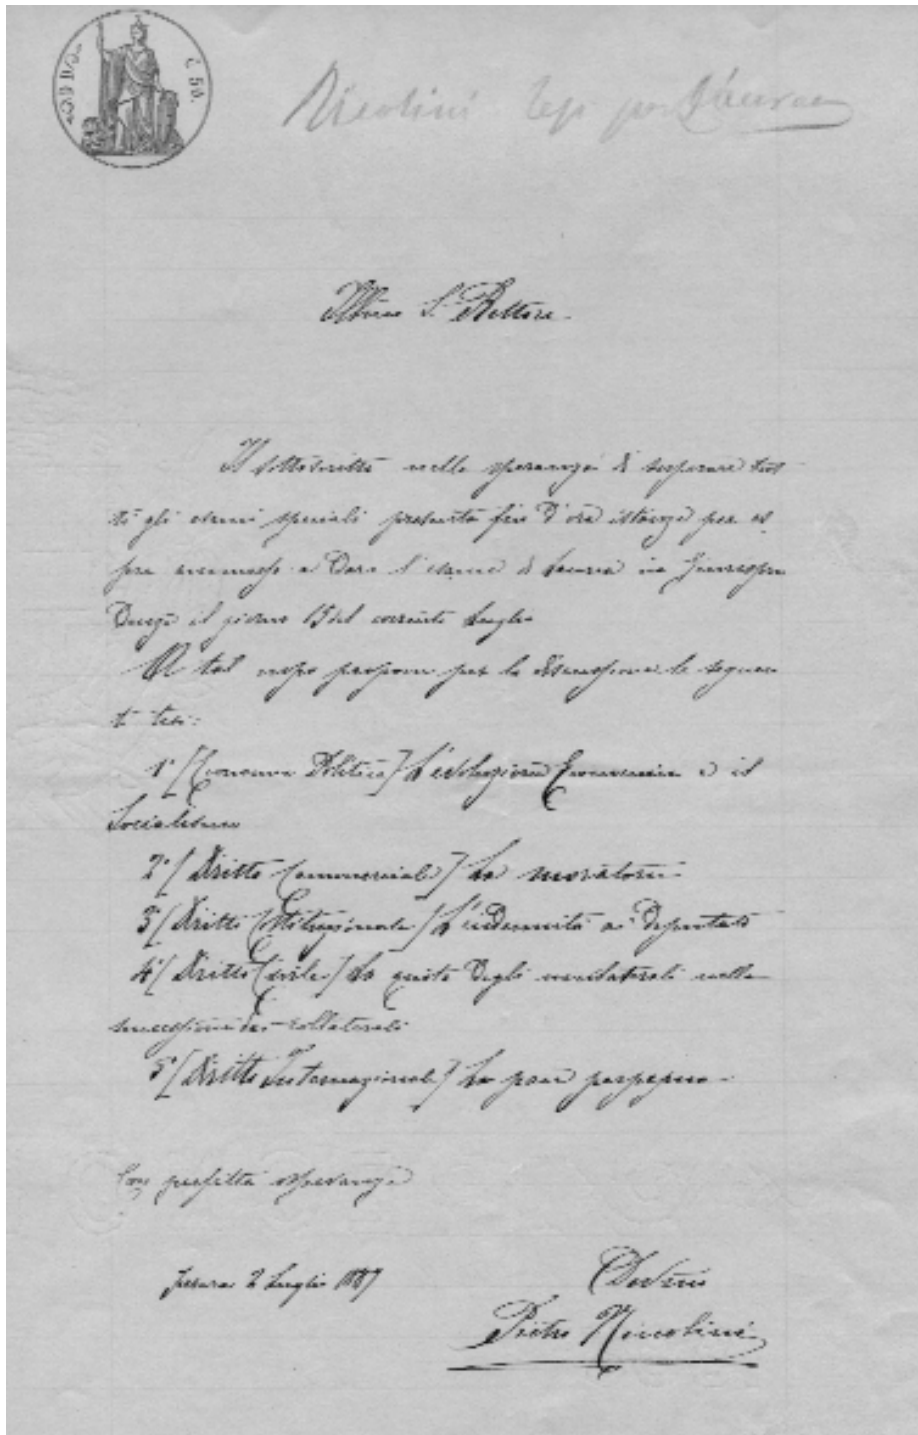 C. 50.
Nicolini Tesi per Laurea
Illmo S. Rettore.
Il sottoscritto nella speranza di superare tut
ti gli esami speciali presenta fin d'ora istanza per es
sere ammesso a dare l'esame di Laurea in Giurispru
denza il giorno 15 del corrente Luglio
A tal uopo propone per la discussione le seguen
ti tesi:
1ª [Economia Politica] L'evoluzione Economica e il
Socialismo
2ª [Diritto Commerciale] La moratoria
3ª [Diritto Costituzionale] L'indennità ai Deputati
4ª [Diritto Civile] La quota degli unilaterali nella
successione dei collaterali
5ª [Diritto Internazionale] La pace perpetua.
Con perfetta osservanza
Ferrara 2 Luglio 1887
Devmo
Pietro Niccolini